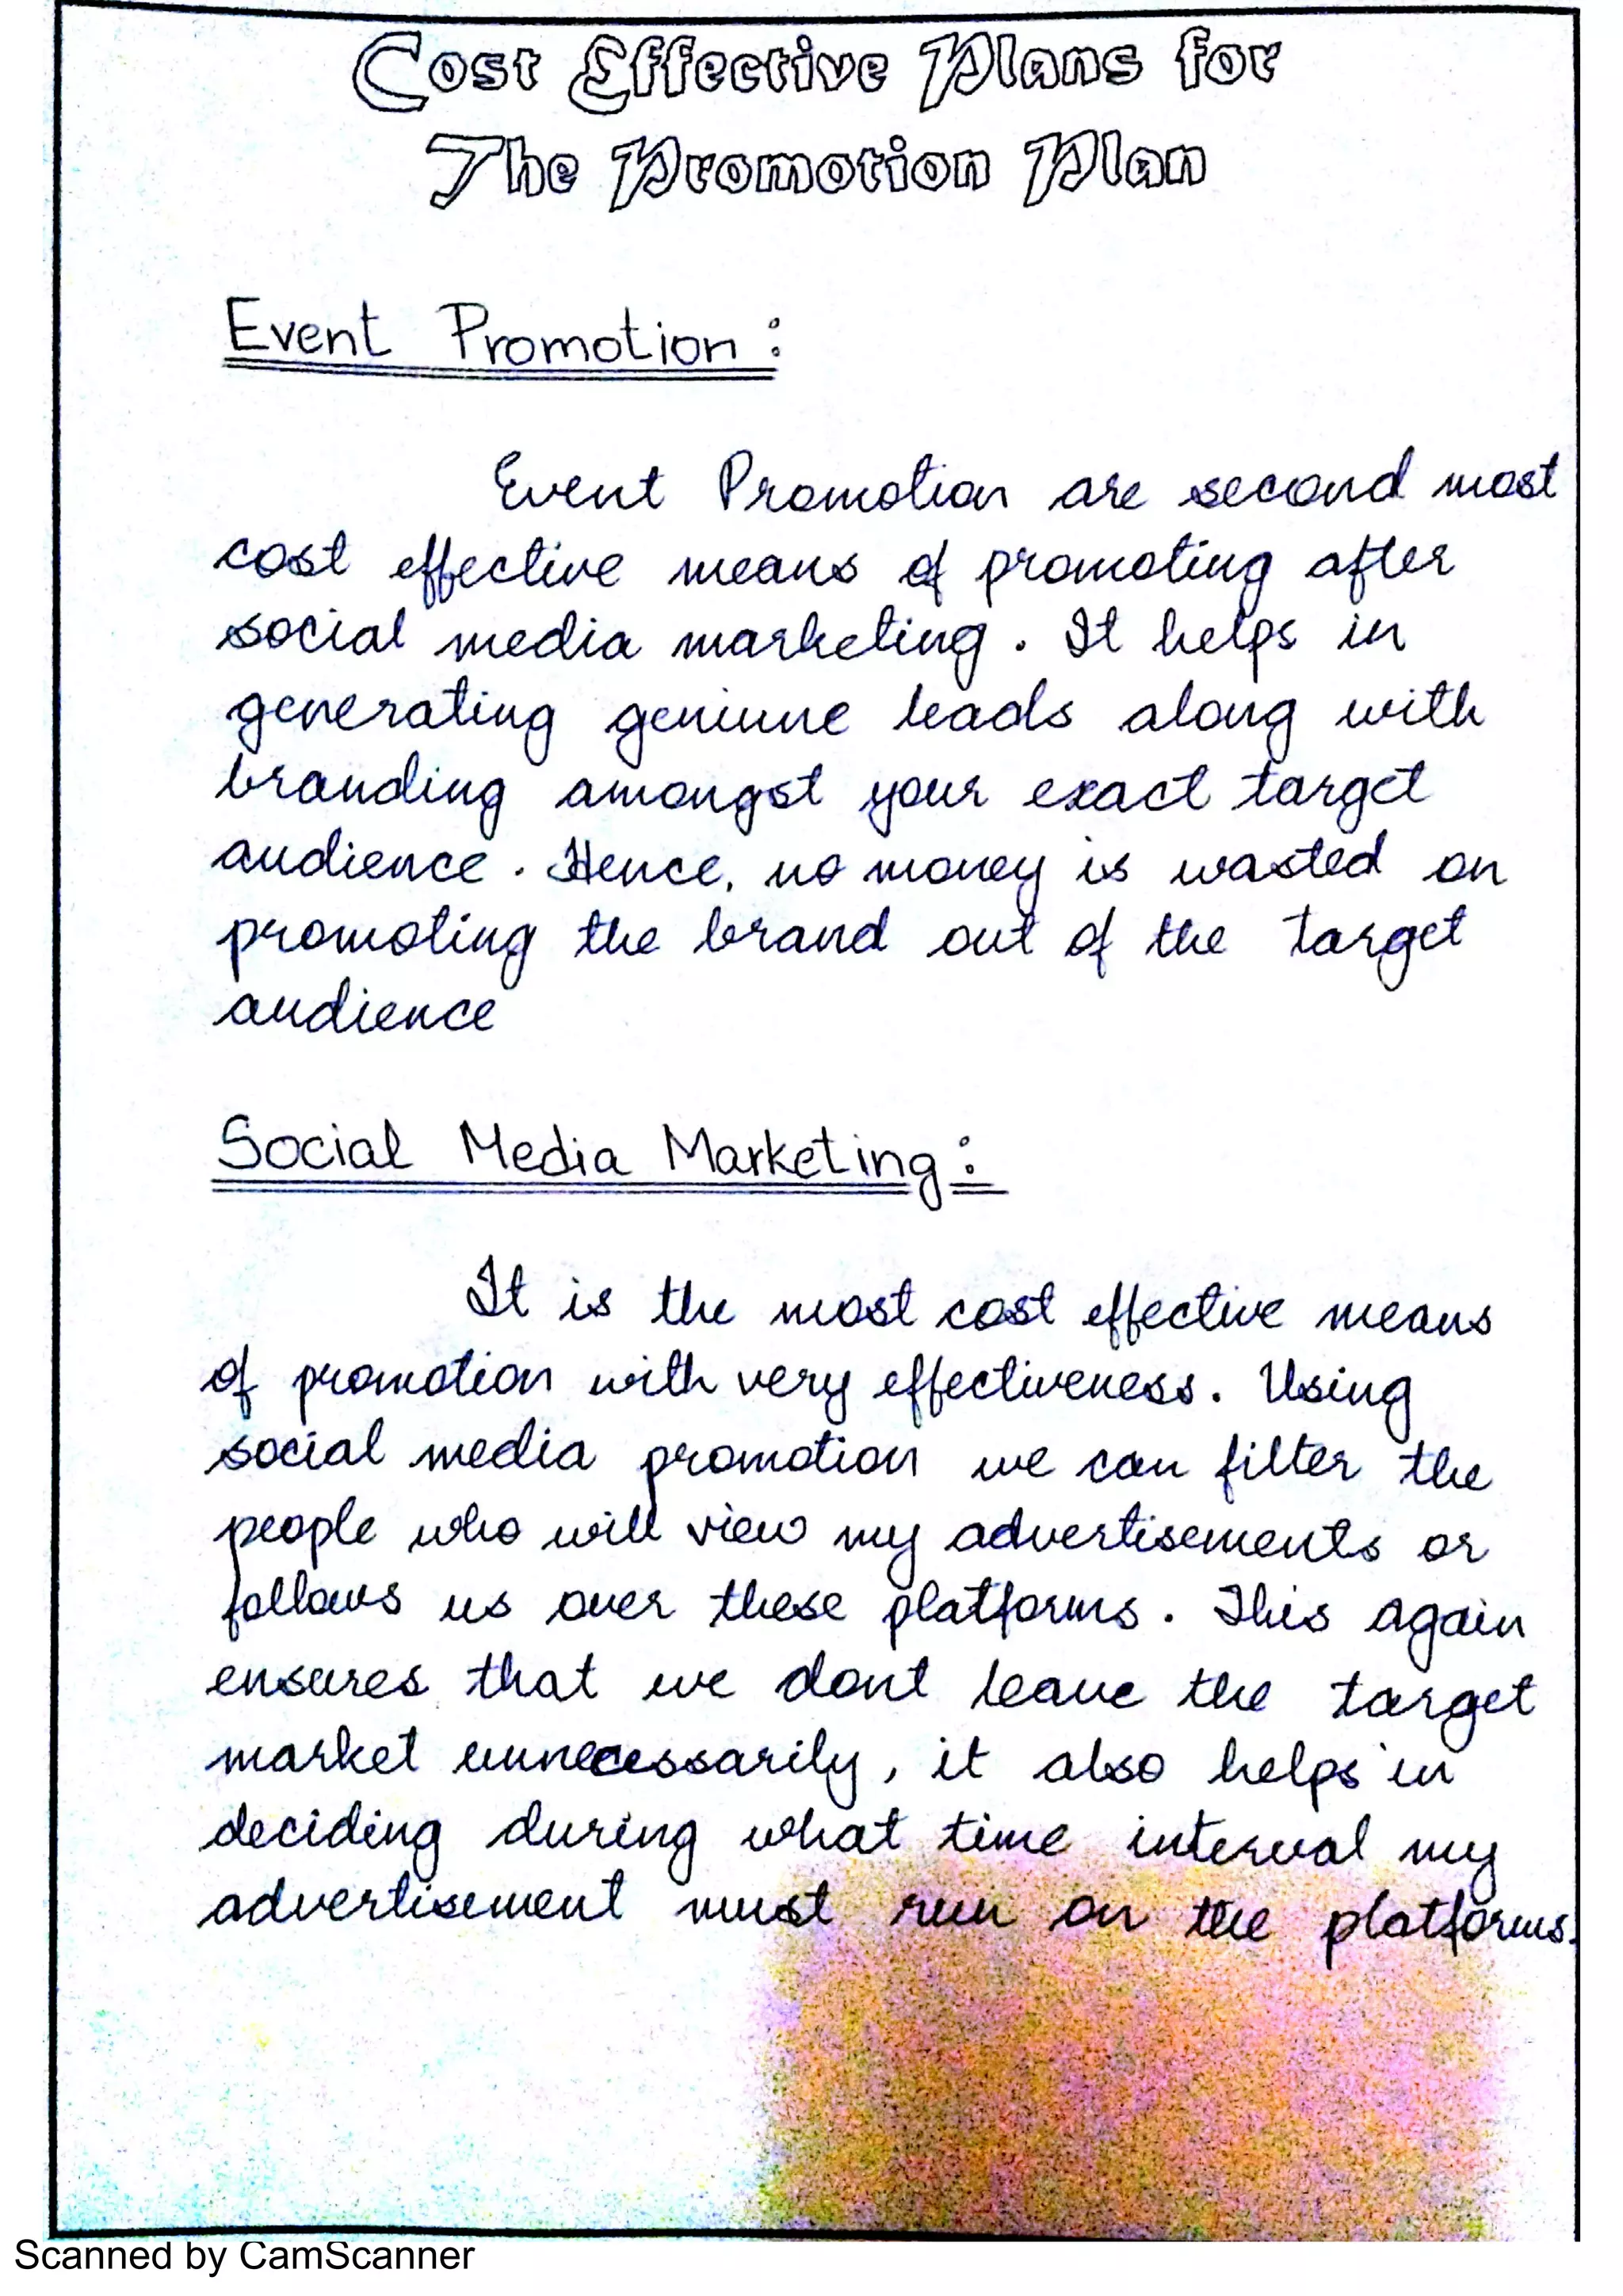 Cost Effective Plans for
The Promotion Plan
Event Promotion :
Event Promotion are second most
cost effective means of promoting after
social media marketing. It helps in
generating geniune leads along with
branding amongst your exact target
audience. Hence, no money is wasted on
promoting the brand out of the target
audience
Social Media Marketing :
It is the most cost effective means
of promotion with very effectiveness. Using
social media promotion we can filter the
people who will view my advertisements or
follows us over these platforms. This again
ensures that we dont leave the target
market unnecessarily, it also helps in
deciding during what time interval my
advertisement must run on the platforms.
Scanned by CamScanner